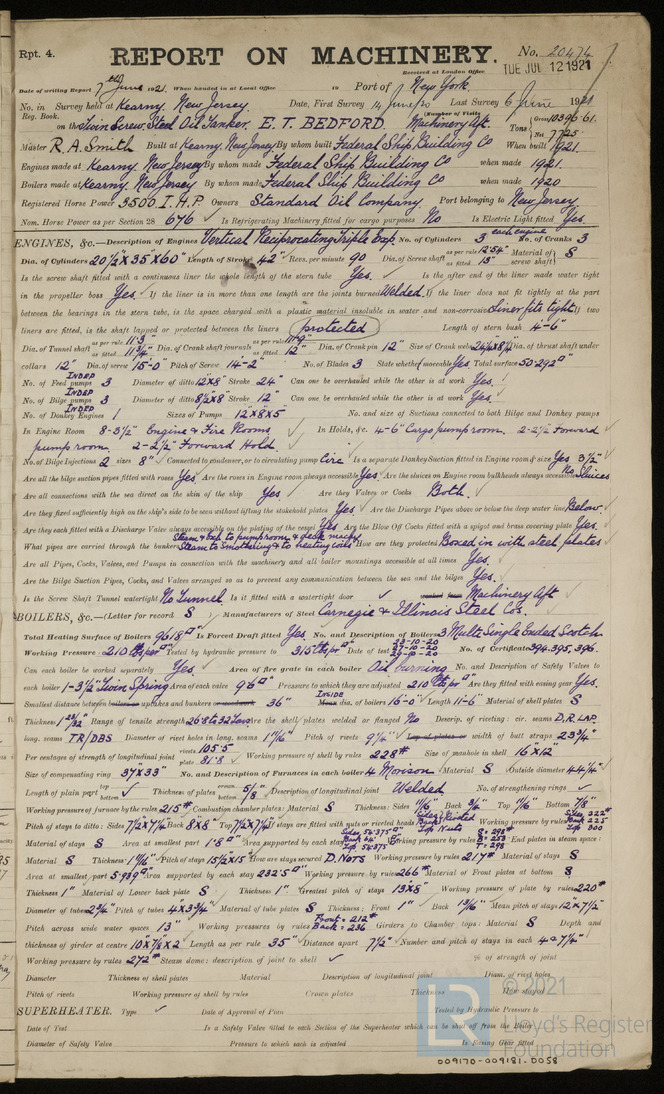 Rpt. 4.
REPORT ON MACHINERY.
No. 20474
Received at London Office
TUE JUL 12 1921
Date of writing Report 7th June 1921 When handed in at Local Office 19 Port of New York.
No. in Survey held at Kearny. New Jersey. Date, First Survey 14 June/20 Last Survey 6 June 1921
Reg. Book. (Number of Visits
on the Twin Screw Steel Oil Tanker. E. T. BEDFORD. Machinery Aft. Tons Gross 10396.61.
Net 7725
Master R. A. Smith Built at Kearny. New Jersey By whom built Federal Ship Building Co When built 1921.
Engines made at Kearny. New Jersey By whom made Federal Ship Building Co when made 1921.
Boilers made at Kearny New Jersey By whom made Federal Ship Building Co when made 1920
Registered Horse Power 3500 I.H.P. Owners Standard Oil Company. Port belonging to New Jersey
Nom. Horse Power as per Section 28 676 Is Refrigerating Machinery fitted for cargo purposes No Is Electric Light fitted Yes.
ENGINES, &c.—Description of Engines Vertical Reciprocating Triple Exp. No. of Cylinders 3 each engine No. of Cranks 3
Dia. of Cylinders 20½ X 35 X 60" Length of Stroke 42" Revs. per minute 90 Dia. of Screw shaft as per rule 12.54" as fitted 13" Material of screw shaft S
Is the screw shaft fitted with a continuous liner the whole length of the stern tube Yes. Is the after end of the liner made water tight
in the propeller boss Yes. If the liner is in more than one length are the joints burned Welded. If the liner does not fit tightly at the part
between the bearings in the stern tube, is the space charged with a plastic material insoluble in water and non-corrosive Liner fits tight If two
liners are fitted, is the shaft lapped or protected between the liners protected Length of stern bush 4-6"
Dia. of Tunnel shaft as per rule 11.3" as fitted 11¾" Dia. of Crank shaft journals as per rule 11.9" as fitted 12" Dia. of Crank pin 12" Size of Crank webs Dia. of thrust shaft under
collars 12" Dia. of screw 15-0" Pitch of Screw 14-2" No. of Blades 3 State whether moveable Yes Total surface 50.292
No. of Feed pumps INDEP 3 Diameter of ditto 12X8" Stroke 24" Can one be overhauled while the other is at work Yes.
No. of Bilge pumps INDEP 3 Diameter of ditto 8½X8" Stroke 12" Can one be overhauled while the other is at work Yes.
No. of Donkey Engines INDEP 1 Sizes of Pumps 12"X8X5 No. and size of Suctions connected to both Bilge and Donkey pumps
In Engine Room 8-3½" Engine & Fire Rooms In Holds, &c. 4-6" Cargo pump room. 2-2½" Forward
pump room. 2-2½" Forward Hold.
No. of Bilge Injections 2 sizes 8" Connected to condenser, or to circulating pump Circ Is a separate Donkey Suction fitted in Engine room & size Yes 3½"
Are all the bilge suction pipes fitted with roses Yes Are the roses in Engine room always accessible Yes Are the sluices on Engine room bulkheads always accessible No Sluices
Are all connections with the sea direct on the skin of the ship Yes Are they Valves or Cocks Both.
Are they fixed sufficiently high on the ship's side to be seen without lifting the stokehold plates Yes Are the Discharge Pipes above or below the deep water line Below
Are they each fitted with a Discharge Valve always accessible on the plating of the vessel Yes Are the Blow Off Cocks fitted with a spigot and brass covering plate Yes.
What pipes are carried through the bunkers Steam & Exp to pump room & deck machy Steam to Smothering & to heating coils How are they protected Boxed in with steel plates
Are all Pipes, Cocks, Valves, and Pumps in connection with the machinery and all boiler mountings accessible at all times Yes.
Are the Bilge Suction Pipes, Cocks, and Valves arranged so as to prevent any communication between the sea and the bilges Yes.
Is the Screw Shaft Tunnel watertight No Tunnel Is it fitted with a watertight door worked from Machinery Aft
BOILERS, &c.—(Letter for record S ) Manufacturers of Steel Carnegie & Illinois Steel Cos.
Total Heating Surface of Boilers 9618 Is Forced Draft fitted Yes. No. and Description of Boilers 3 Mult. Single Ended Scotch
Working Pressure 210 lbs per Tested by hydraulic pressure to 315 lbs per Date of test 23-10-20 27-10-20 No. of Certificate 394.395.396.
Can each boiler be worked separately Yes. Area of fire grate in each boiler Oil burning No. and Description of Safety Valves to
each boiler 1-3½" Twin Spring Area of each valve 9.6 Pressure to which they are adjusted 210 lbs per Are they fitted with easing gear Yes.
Smallest distance between boilers or uptakes and bunkers or woodwork 36" INSIDE Mean dia. of boilers 16-0" Length 11-6" Material of shell plates S
Thickness 1 23/32 Range of tensile strength 26.8 to 32 Tons Are the shell plates welded or flanged No Descrip. of riveting: cir. seams D.R. LAP.
long. seams TR/DBS Diameter of rivet holes in long. seams 1 7/16" Pitch of rivets 9¼" Lap of plates or width of butt straps 23¾"
Per centages of strength of longitudinal joint rivets 105.5 plate 81.8 Working pressure of shell by rules 228# Size of manhole in shell 16"X12"
Size of compensating ring 37"X33" No. and Description of Furnaces in each boiler 4 Morison Material S Outside diameter 44¼"
Length of plain part top bottom Thickness of plates crown bottom 5/8 Description of longitudinal joint Welded No. of strengthening rings
Working pressure of furnace by the rules 215# Combustion chamber plates: Material S Thickness: Sides 11/16 Back 3/8" Top 11/16 Bottom 7/8"
Pitch of stays to ditto: Sides 7½"X7¼" Back 8X8" Top 7½"X7¼" If stays are fitted with nuts or riveted heads Sides & Riveted Top Nuts Working pressure by rules Sides 322# Back 225 Top 300
Material of stays S Area at smallest part 1.8 Area supported by each stay Sides 54.375 Back 64 Top 54.375 Working pressure by rules S 298# B 253 T 298 End plates in steam space:
Material S Thickness 1 1/16" Pitch of stays 15½X15" How are stays secured D. NUTS Working pressure by rules 217# Material of stays S
Area at smallest part 5.939 Area supported by each stay 232.5 Working pressure by rules 266# Material of Front plates at bottom S
Thickness 1" Material of Lower back plate S Thickness 1" Greatest pitch of stays 13X8" Working pressure of plate by rules 220#
Diameter of tubes 2¾" Pitch of tubes 4X3¾" Material of tube plates S Thickness: Front 1" Back 13/16" Mean pitch of stays 12"X7½"
Pitch across wide water spaces 13" Working pressures by rules Front = 212# Back = 236 Girders to Chamber tops: Material S Depth and
thickness of girder at centre 10X7/8X2 Length as per rule 35" Distance apart 7½" Number and pitch of stays in each 4 @ 7¼"
Working pressure by rules 272# Steam dome: description of joint to shell % of strength of joint
Diameter Thickness of shell plates Material Description of longitudinal joint Diam. of rivet holes
Pitch of rivets Working pressure of shell by rules Crown plates Thickness How stayed
SUPERHEATER. Type Date of Approval of Plan Tested by Hydraulic Pressure to
Date of Test Is a Safety Valve fitted to each Section of the Superheater which can be shut off from the Boiler
Diameter of Safety Valve Pressure to which each is adjusted Is Easing Gear fitted
LR © 2021
Lloyd's Register
Foundation
009170-009181-0058